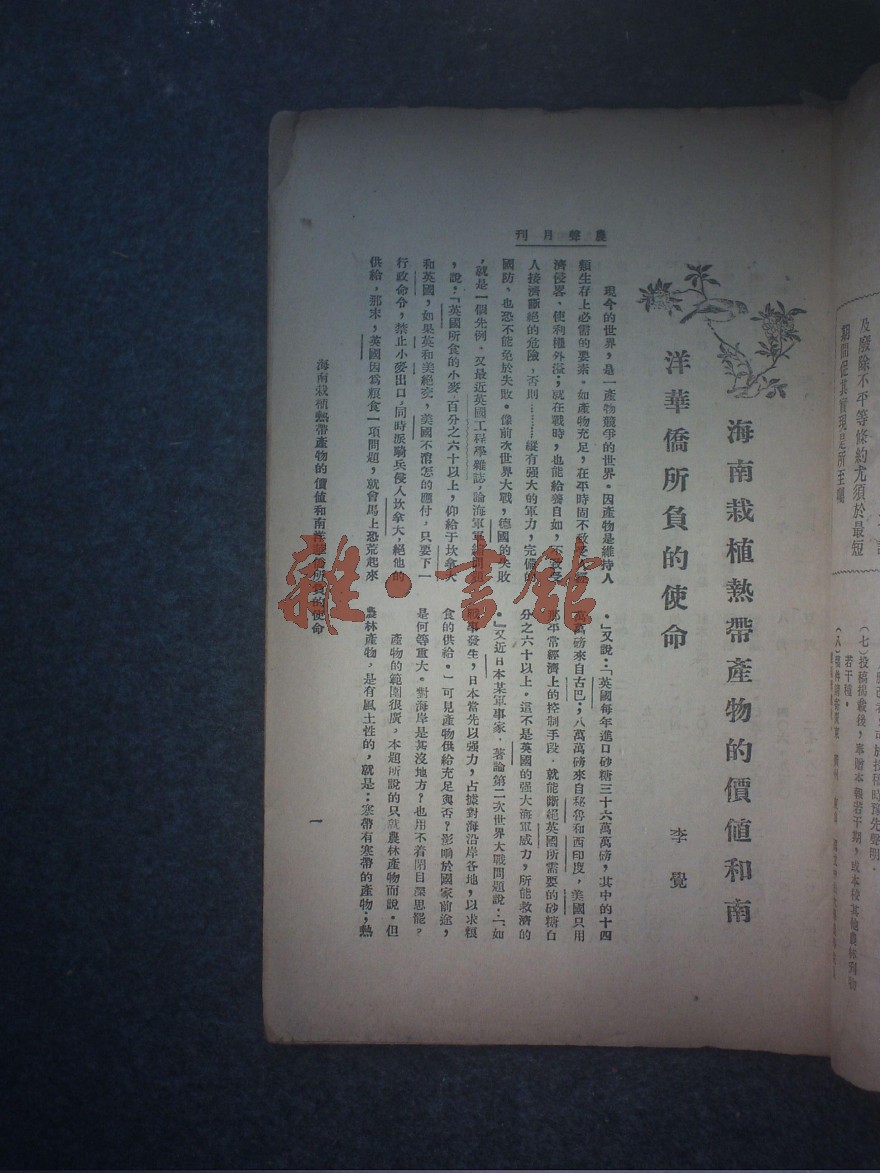 及廢除不平等條約尤須於最短
期間促其實現是所至囑
(七)投稿揭載後,專贈本報若干期,或本校其他農林刊物
若干種。
農聲月刊
海南栽植熱帶產物的價值和南
洋華僑所負的使命
李覺
現今的世界,是一產物競爭的世界。因產物是維持人
類生存上必需的要素。如產物充足,在平時固不致受人經
濟侵畧,使利權外溢;就在戰時,也能給養自如,不致受
人接濟斷絕的危險,否則……縱有强大的軍力,完備的
國防,也恐不能免於失敗。像前次世界大戰,德國的失敗
,就是一個先例。又最近英國工程學雜誌,論海軍軍縮問題
,說:「英國所食的小麥,百分之六十以上,仰給于坎拿大
和美國,如果英和美絕交,美國不需怎的應付,只要下一
行政命令,禁止小麥出口,同時派騎兵侵入坎拿大,絕他的
供給,那末,英國因爲糧食一項問題,就會馬上恐荒起來
。」又說:「英國每年進口砂糖三十六萬萬磅,其中的十四
萬萬磅來自古巴;八萬萬磅來自秘魯和西印度,美國只用
那平常經濟上的控制手段,就能斷絕英國所需要的砂糖百
分之六十以上。這不是英國的强大海軍威力,所能救濟的
。」又近日本某軍事家,著論第二次世界大戰問題說:「如
戰事發生,日本當先以强力,占據對海沿岸各地,以求糧
食的供給。」可見產物供給充足與否?影响於國家前途,
是何等重大。對海岸是甚沒地方?也用不着閉目深思罷?
產物的範圍很廣,本題所說的只就農林產物而說。但
農林產物,是有風土性的,就是:寒帶有寒帶的產物;熱
海南栽植熱帶產物的價值和南洋華僑所負的使命
一
雜·書館